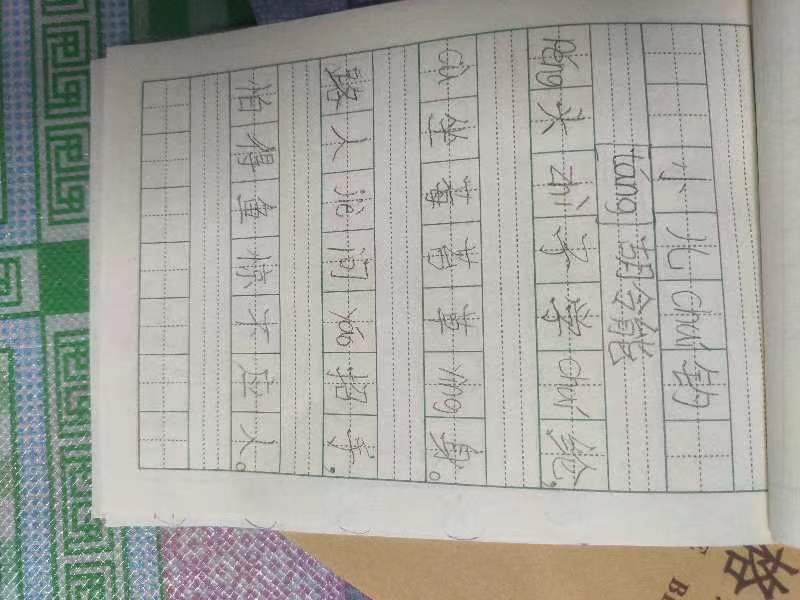 小儿chuí钓
táng 胡令能
péng头zhì子学chuí纶,
cè坐莓苔草yìng身。
路人jiè问yáo招手,
怕得鱼惊不应人。
格